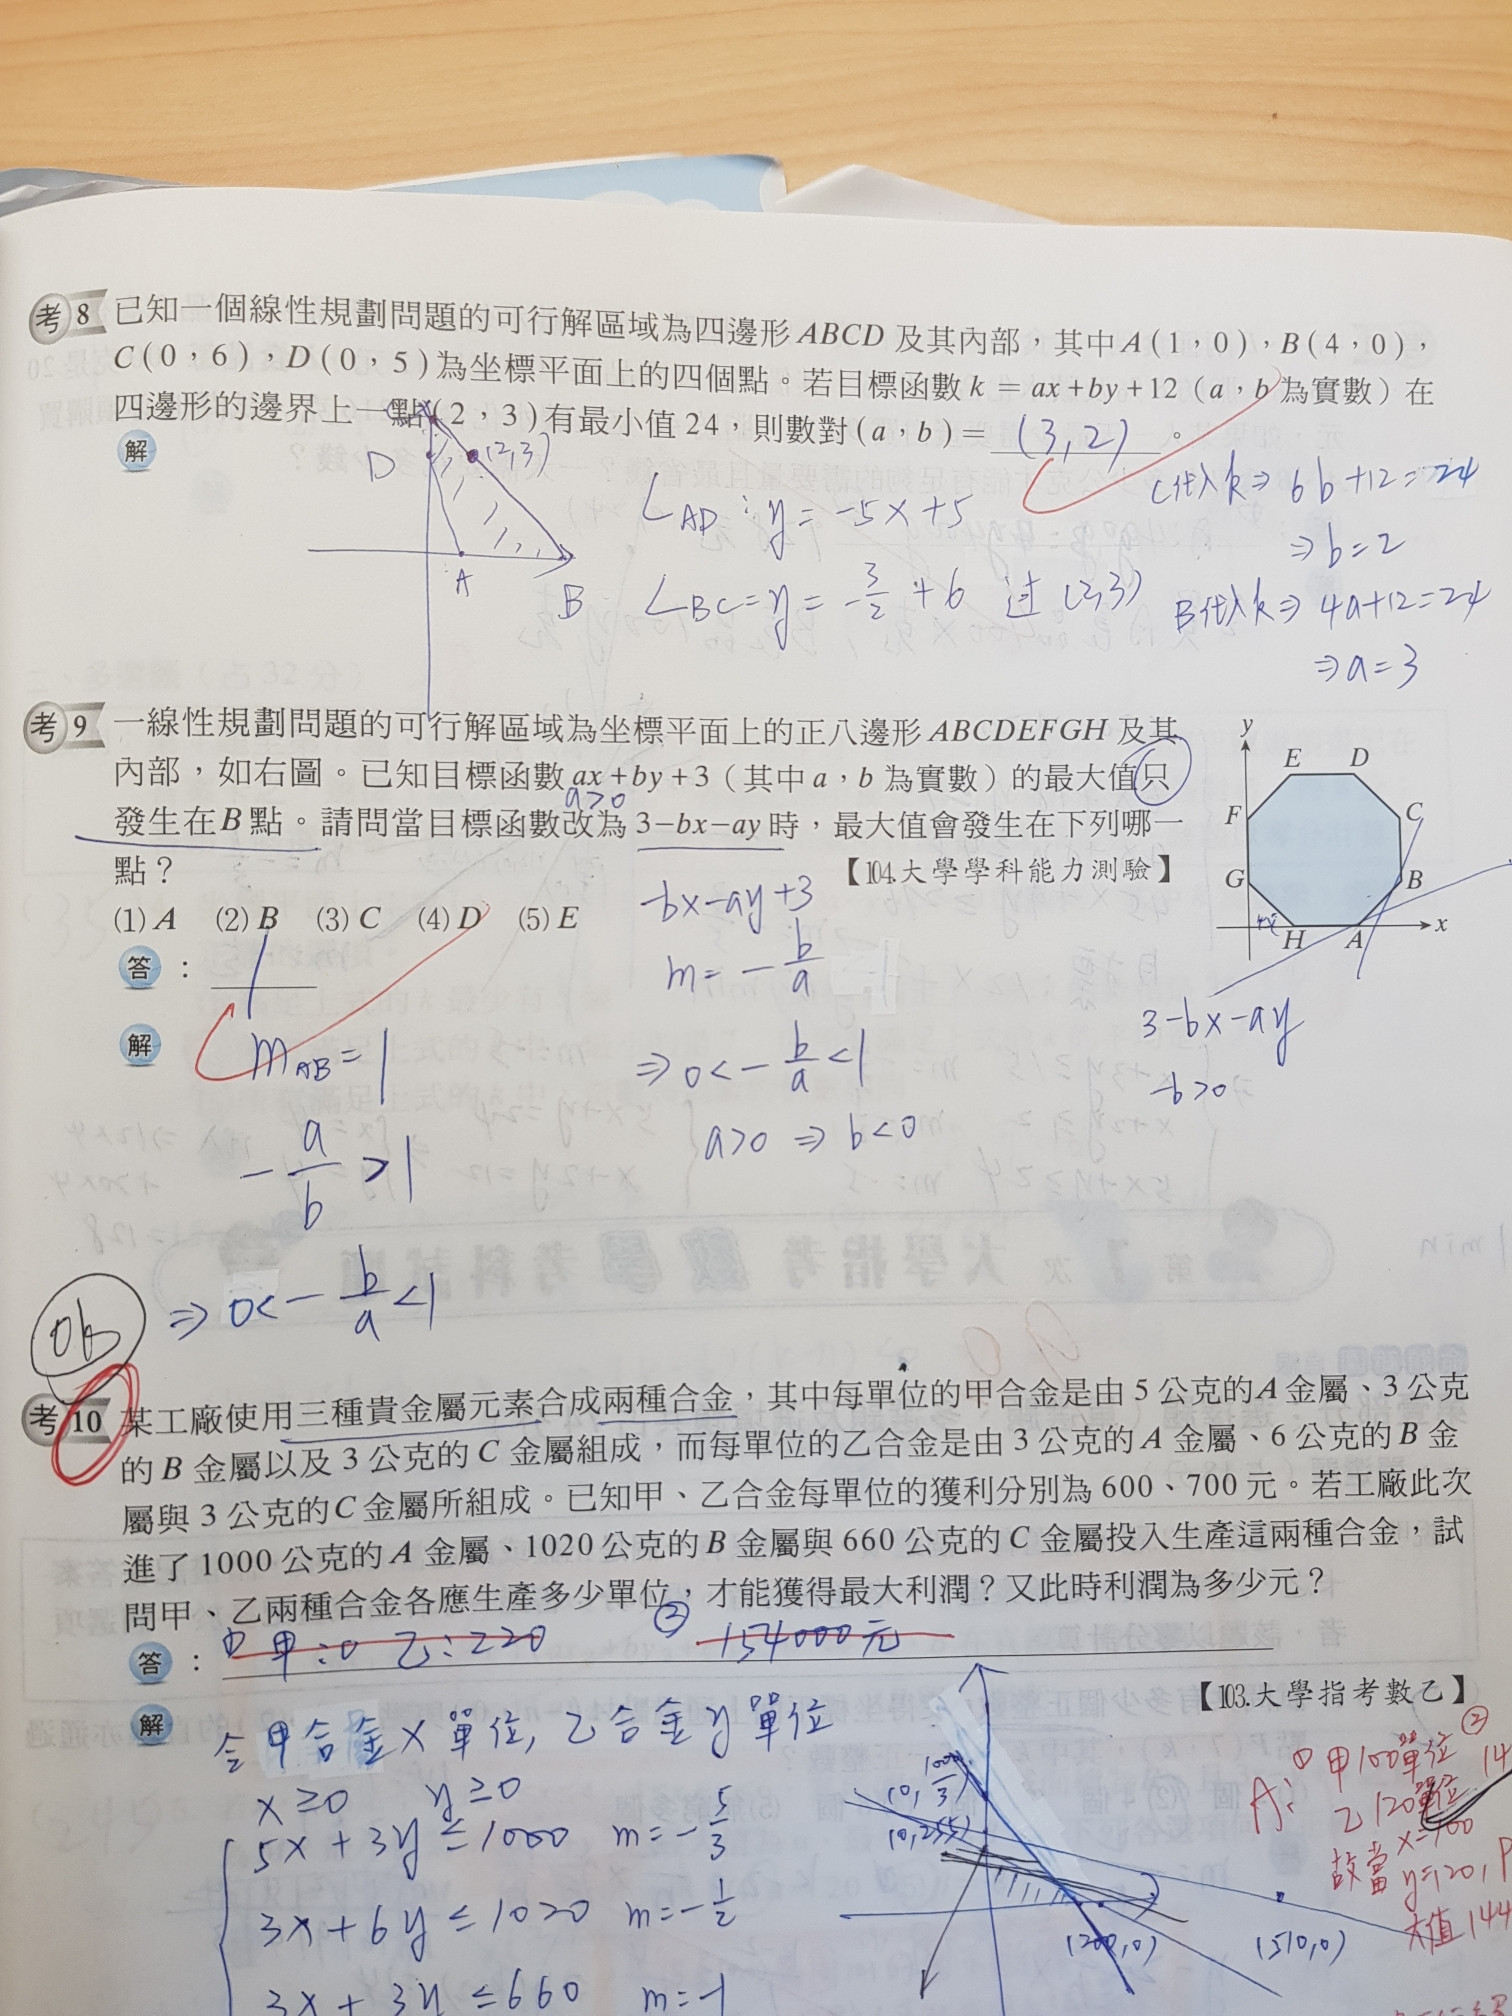 考8 已知一個線性規劃問題的可行解區域為四邊形ABCD及其內部，其中A(1，0)，B(4，0)，
C(0，6)，D(0，5)為坐標平面上的四個點。若目標函數k=ax+by+12（a，b為實數）在
四邊形的邊界上一點(2，3)有最小值24，則數對(a，b)= (3,2) 。
解
D
(2,3)
A
B
L_AD：y=-5x+5
L_BC=y=-3/2+6 过(2,3)
C代入k⇒6b+12=24
⇒b=2
B代入k⇒4a+12=24
⇒a=3
考9 一線性規劃問題的可行解區域為坐標平面上的正八邊形ABCDEFGH及其
內部，如右圖。已知目標函數ax+by+3（其中a，b為實數）的最大值只
a>0
發生在B點。請問當目標函數改為3-bx-ay時，最大值會發生在下列哪一
點？ 【104.大學學科能力測驗】
(1) A (2) B (3) C (4) D (5) E
答：
解
y
E D
F C
G B
H A x
m_AB=1
-a/b>1
⇒0<-b/a<1
-bx-ay+3
m=-b/a
⇒0<-b/a<1
a>0⇒b<0
3-bx-ay
-b>0
ok
考10 某工廠使用三種貴金屬元素合成兩種合金，其中每單位的甲合金是由5公克的A金屬、3公克
的B金屬以及3公克的C金屬組成，而每單位的乙合金是由3公克的A金屬、6公克的B金
屬與3公克的C金屬所組成。已知甲、乙合金每單位的獲利分別為600、700元。若工廠此次
進了1000公克的A金屬、1020公克的B金屬與660公克的C金屬投入生產這兩種合金，試
問甲、乙兩種合金各應生產多少單位，才能獲得最大利潤？又此時利潤為多少元？
答：①甲:0 乙:220 ②154000元
【103.大學指考數乙】
解
令甲合金x單位,乙合金y單位
x≥0 y≥0
5x+3y≤1000 m=-5/3
3x+6y≤1020 m=-1/2
3x+3y≤660 m=-1
(0,1000/3)
(0,255)
(200,0)
(510,0)
A：①甲100單位 ②14
乙120單位
故當x=100
y=120,P
大值144